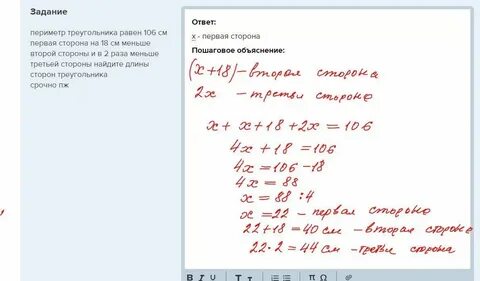 Задание
периметр треугольника равен 106 см
первая сторона на 18 см меньше
второй стороны и в 2 раза меньше
третьей стороны найдите длины
сторон треугольника
срочно пж
Ответ:
x - первая сторона
Пошаговое объяснение:
(x+18) - вторая сторона
2x - третья сторона
x + x+18 + 2x = 106
4x + 18 = 106
4x = 106 - 18
4x = 88
x = 88 : 4
x = 22 - первая сторона
22 + 18 = 40 см - вторая сторона
22 · 2 = 44 см - третья сторона
B I U T т π Ω